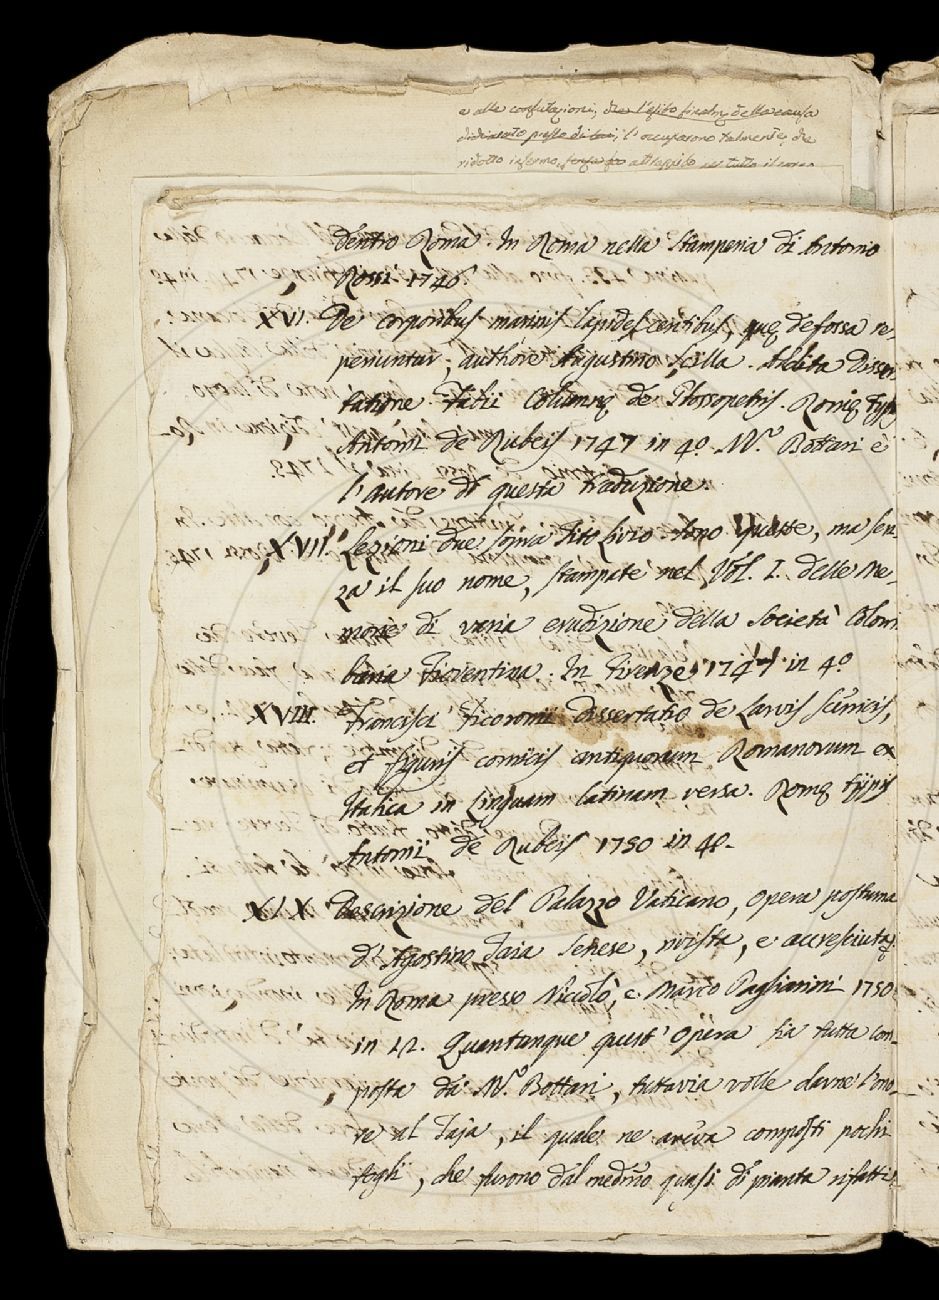 e alla confutazione, che l'esito finalm.e della causa
dichiarato presso di lui, l'occuparono talmente, che
ridotto infermo, attrappito per tutto il corpo
dentro Roma. In Roma nella Stamperia di Antonio
Rossi 1746.
XVI. De corporibus marinis lapidescentibus, quę defossa re-
periuntur; authore Augustino Scilla. Addita disser-
tatione Fabii Columnę de Glossopetris. Romę typis
Antonii de Rubeis 1747 in 4o. M.r Bottari è
l'autore di questa traduzione.
XVII. Lezioni due sopra Tito Livio. Sono queste, ma sen-
za il suo nome, stampate nel Vol. I. delle Me-
morie di varia erudizione della Società Colom-
baria Fiorentina. In Firenze 1747 in 4o
XVIII. Francisci Ficoronii Dissertatio de Larvis Scenicis,
et figuris comicis antiquorum Romanorum ex
Italica in Linguam latinam versa. Romę typis
Antonii de Rubeis 1750 in 4o.
XIX. Descrizione del Palazzo Vaticano, opera postuma
di Agostino Taia Senese, rivista, e accresciuta.
In Roma presso Niccolò, e Marco Pagliarini 1750
in 12. Quantunque quest' opera sia tutta com-
posta da M.r Bottari, tuttavia volle darne l'ono-
re al Taja, il quale ne aveva composti pochi
fogli, che furono dal med.mo quasi di pianta rifatti.